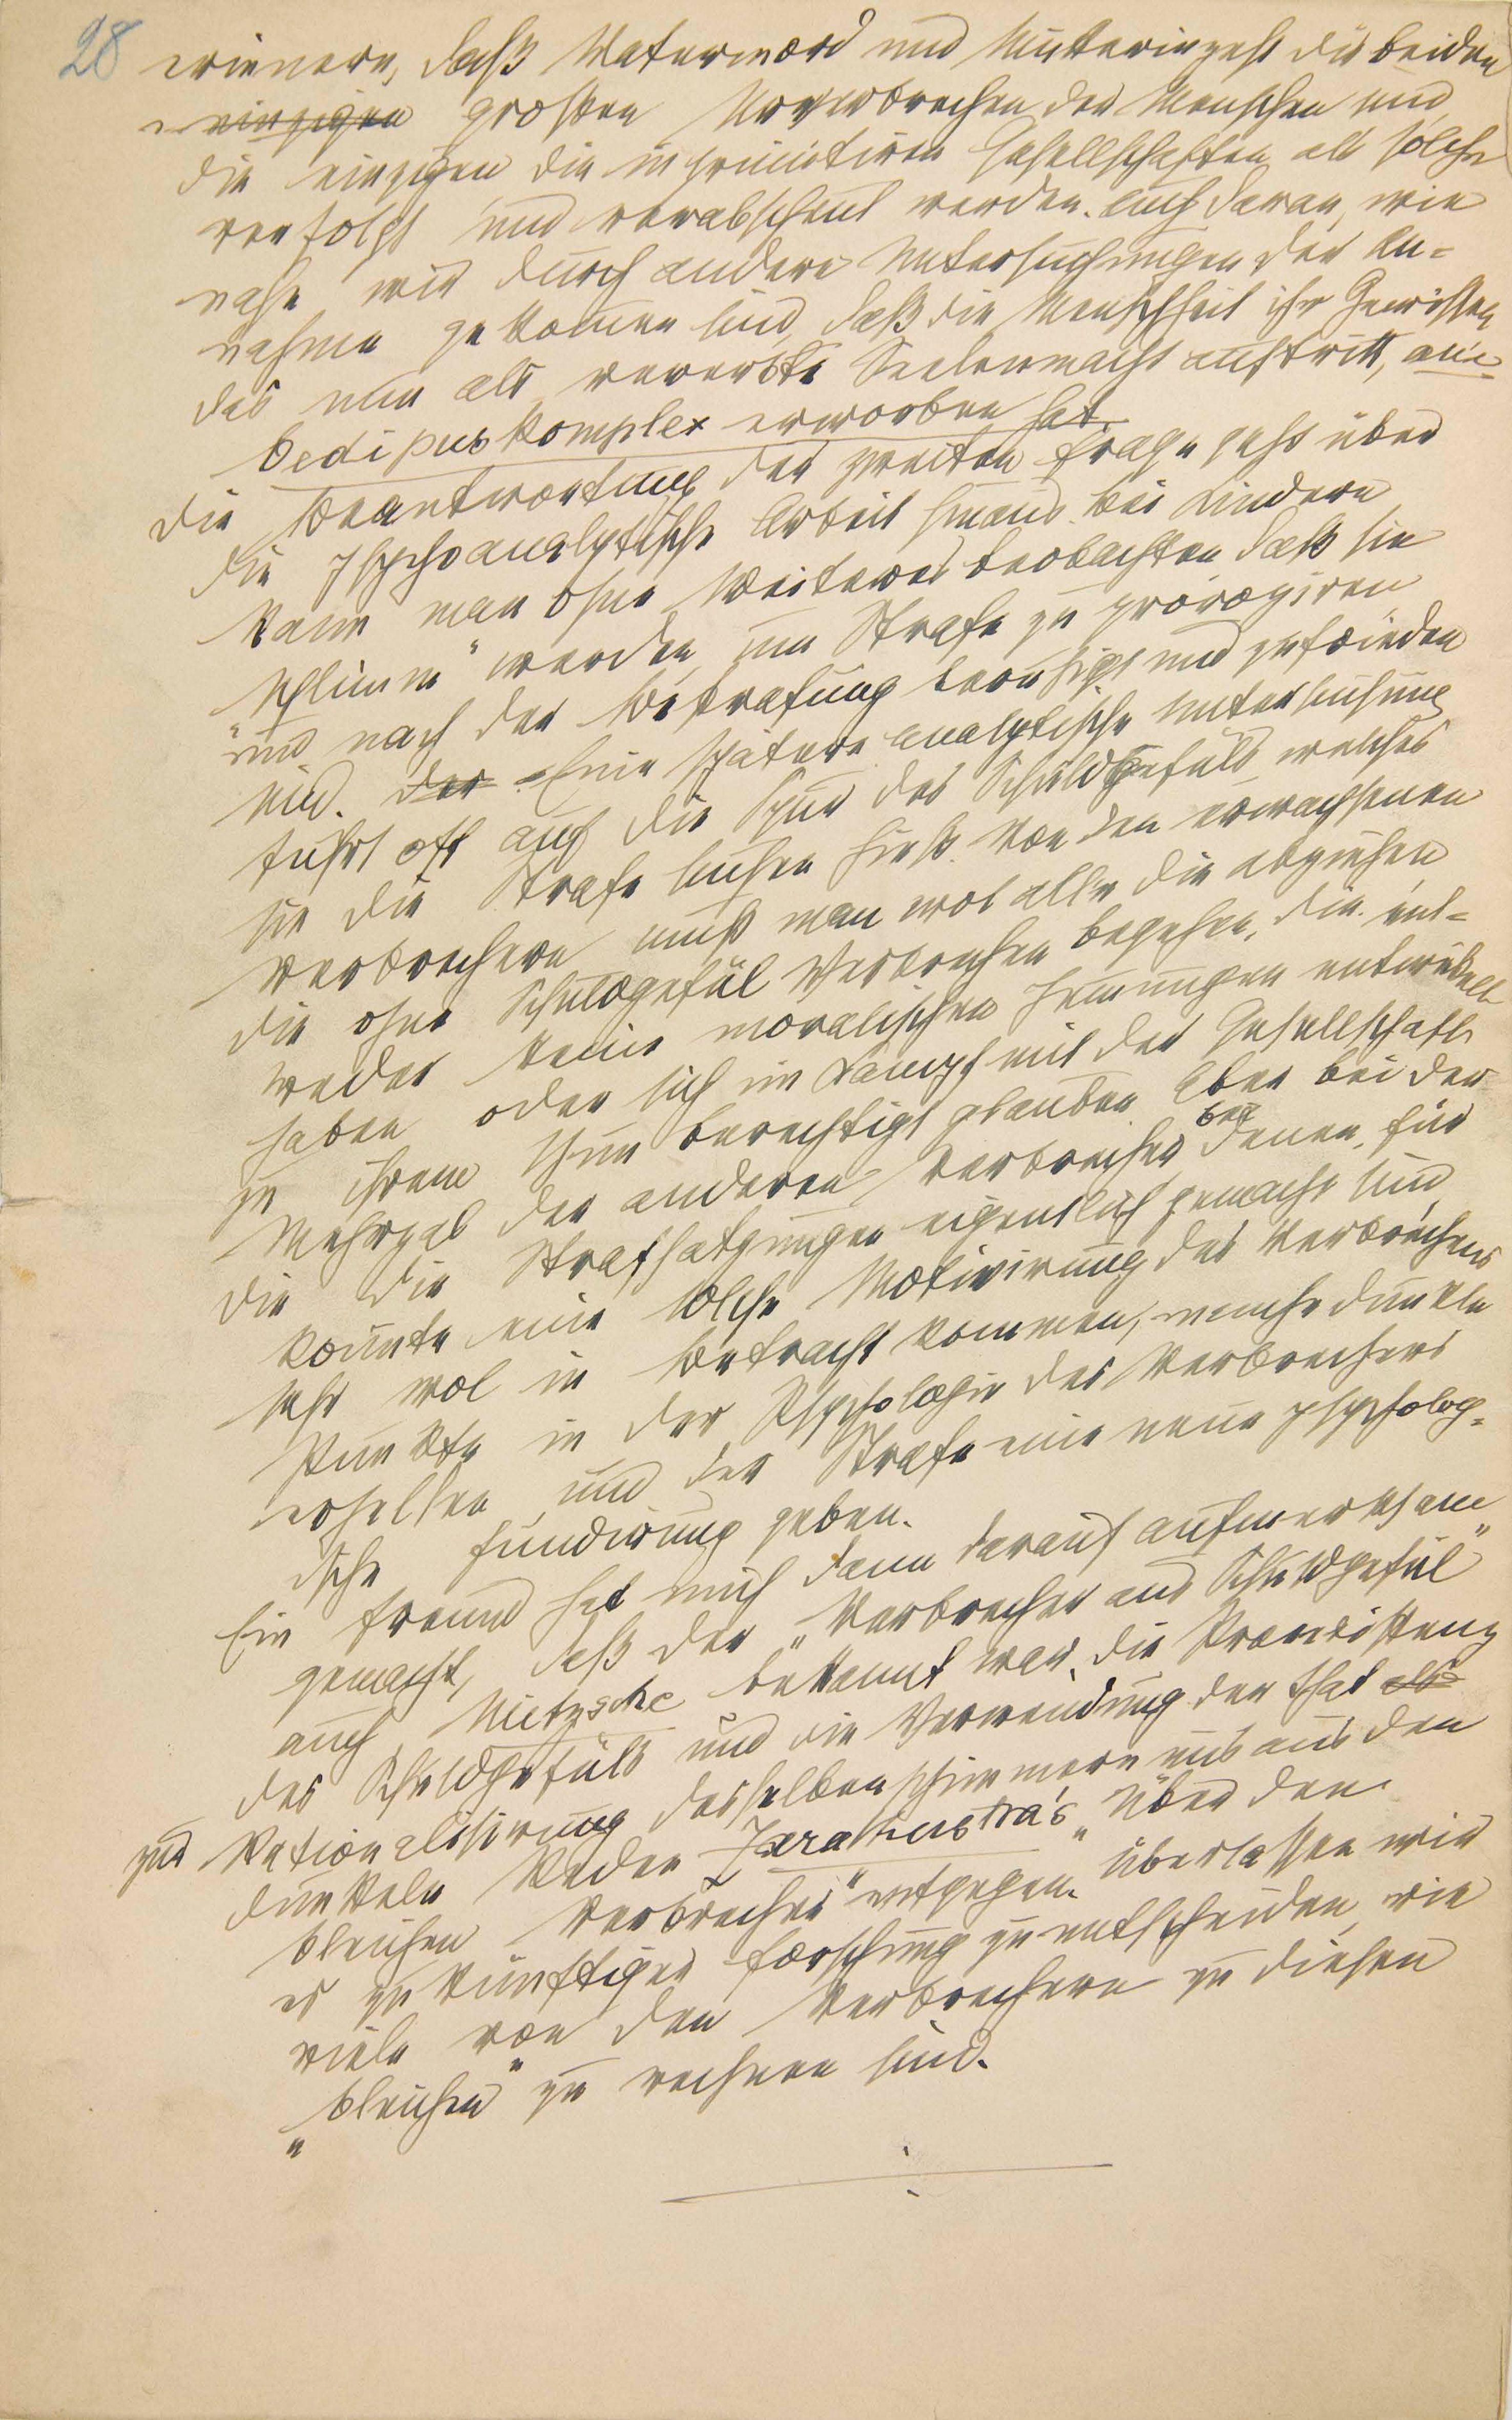 28
erinnern, daß Vatermord und Mutterinzest die beiden
einzigen großen Verbrechen der Menschen sind,
die einzigen die in primitiven Gesellschaften als solche
verfolgt und verabscheut werden. Auch daran, wie
nahe wir durch andere Untersuchungen der An-
nahme gekommen sind, daß die Menschheit ihr Gewissen,
das nun als vererbte Seelenmacht auftritt, am
Oedipuskomplex erworben hat.
Die Beantwortung der zweiten Frage geht über
die psychoanalytische Arbeit hinaus. Bei Kindern
kann man ohne Weiteres beobachten daß sie
„schlimm“ werden, um Strafe zu provoziren,
und nach der Bestrafung beruhigt und zufrieden
sind. Der Eine spätere analytische Untersuchung
führt oft auf die Spur des Schuldgefüls, welches
sie die Strafe suchen hieß. Von den erwachsenen
Verbrechern muß man wol alle die abziehen,
die ohne Schuldgefül Verbrechen begehen, die ent-
weder keine moralischen Hemmungen entwickelt
haben oder sich im Kampf mit der Gesellschaft
zu ihrem Thun berechtigt glauben. Aber bei der
Mehrzal der anderen Verbrecher, bei denen, für
die die Strafsatzungen eigentlich gemacht sind,
könnte eine solche Motivirung des Verbrechens
sehr wol in Betracht kommen, manche dunkle
Punkte in der Psychologie des Verbrechers
erhellen, und der Strafe eine neue psycholog-
ische Fundirung geben.
Ein Freund hat mich dann darauf aufmerksam
gemacht, daß der „Verbrecher aus Schuldgefül“
auch Nietzsche bekannt war. Die Präexistenz
des Schuldgefüls und die Verwendung der That als
zur Rationalisirung desselben schimmern uns aus den
dunkeln Reden Zarathustra's „Über den
bleichen Verbrecher“ entgegen. Überlassen wir
es zukünftiger Forschung zu entscheiden, wie
viele von den Verbrechern zu diesen
„bleichen“ zu rechnen sind.